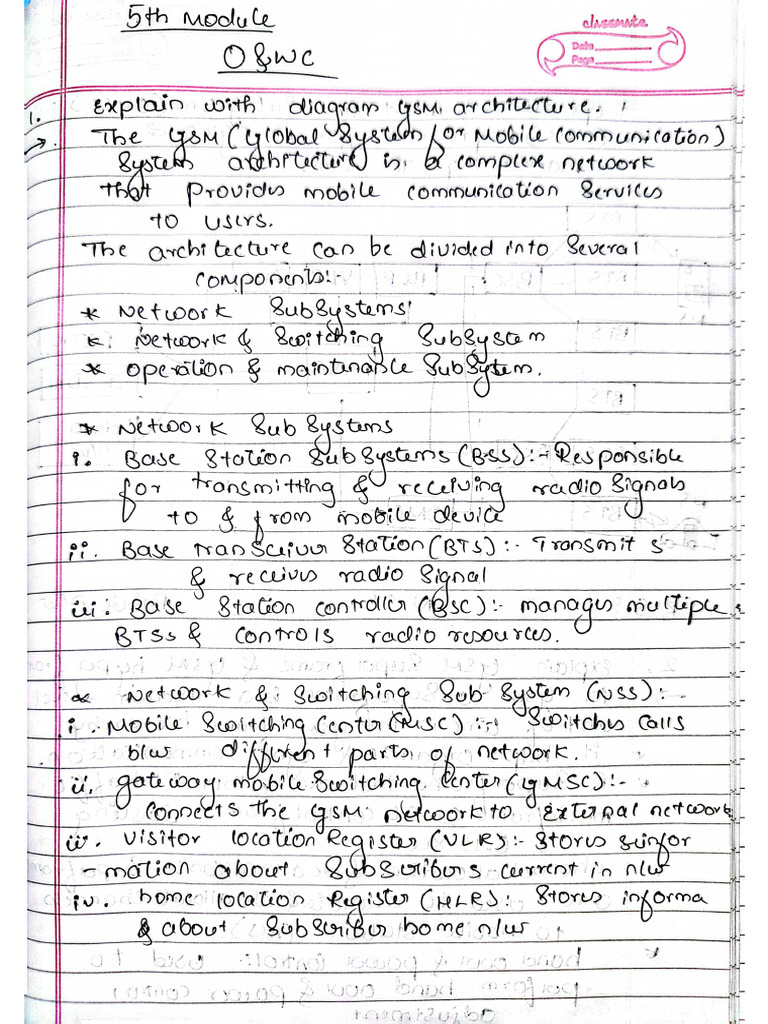 5th Module
classmate
O & WC
Date
Page
1. Explain with diagram GSM architecture.
→ The GSM (Global System for Mobile Communication)
System architecture is a complex network
that provides mobile communication services
to users.
The architecture can be divided into several
components:-
* Network SubSystems
* Network & Switching SubSystem
* Operation & maintenance SubSytem.
* Network Sub Systems
i. Base Station SubSystems (BSS):- Responsible
for transmitting & receiving radio signals
to & from mobile device
ii. Base transceiver Station (BTS):- Transmit s
& receives radio signal
iii. Base Station controller (BSC):- manages multiple
BTSs & controls radio resources.
* Network & Switching Sub System (NSS):-
i. Mobile Switching Center (MSC):- Switches calls
b/w different parts of network.
ii. gateway mobile Switching Center (GMSC):-
connects the GSM network to External network
iii. Visitor location Register (VLR):- Stores infor
-mation about Subscribers current in n/w
iv. home location Register (HLR): Stores informa
& about Subscriber home n/w